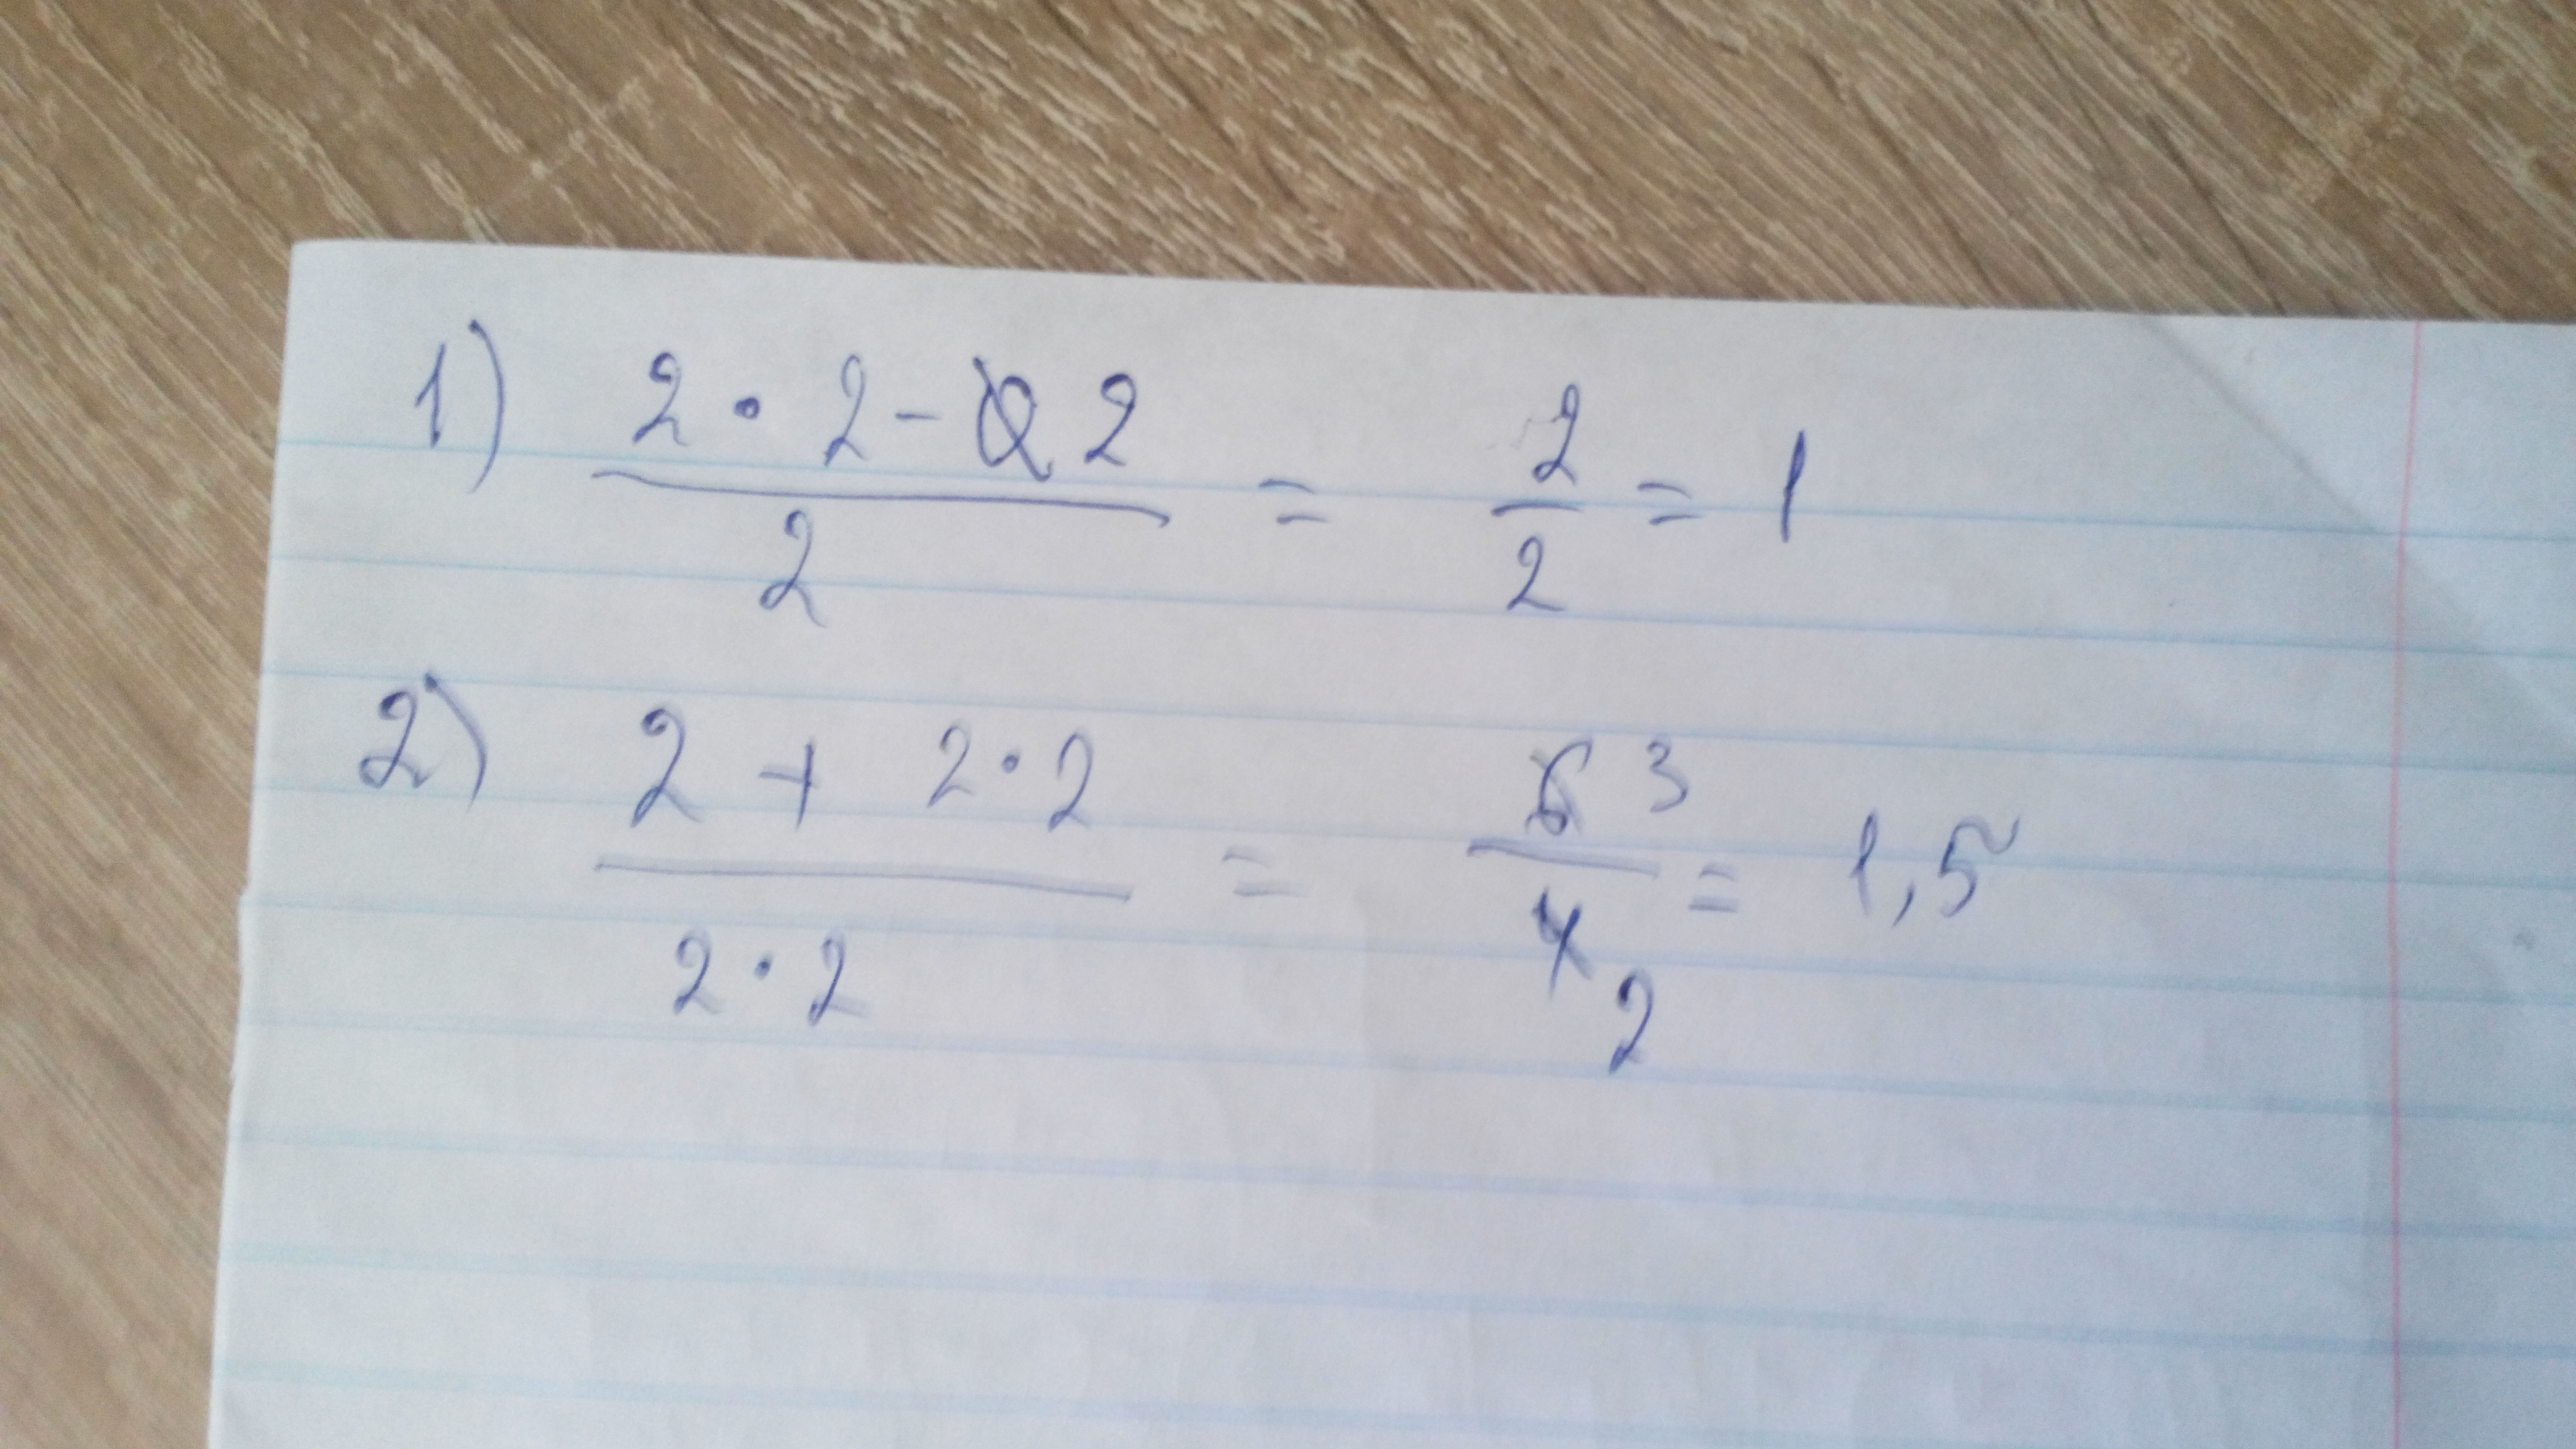 1) (2 · 2 - 2) / 2 = 2/2 = 1
2) (2 + 2 · 2) / (2 · 2) = 6 3 / 4 2 = 1,5